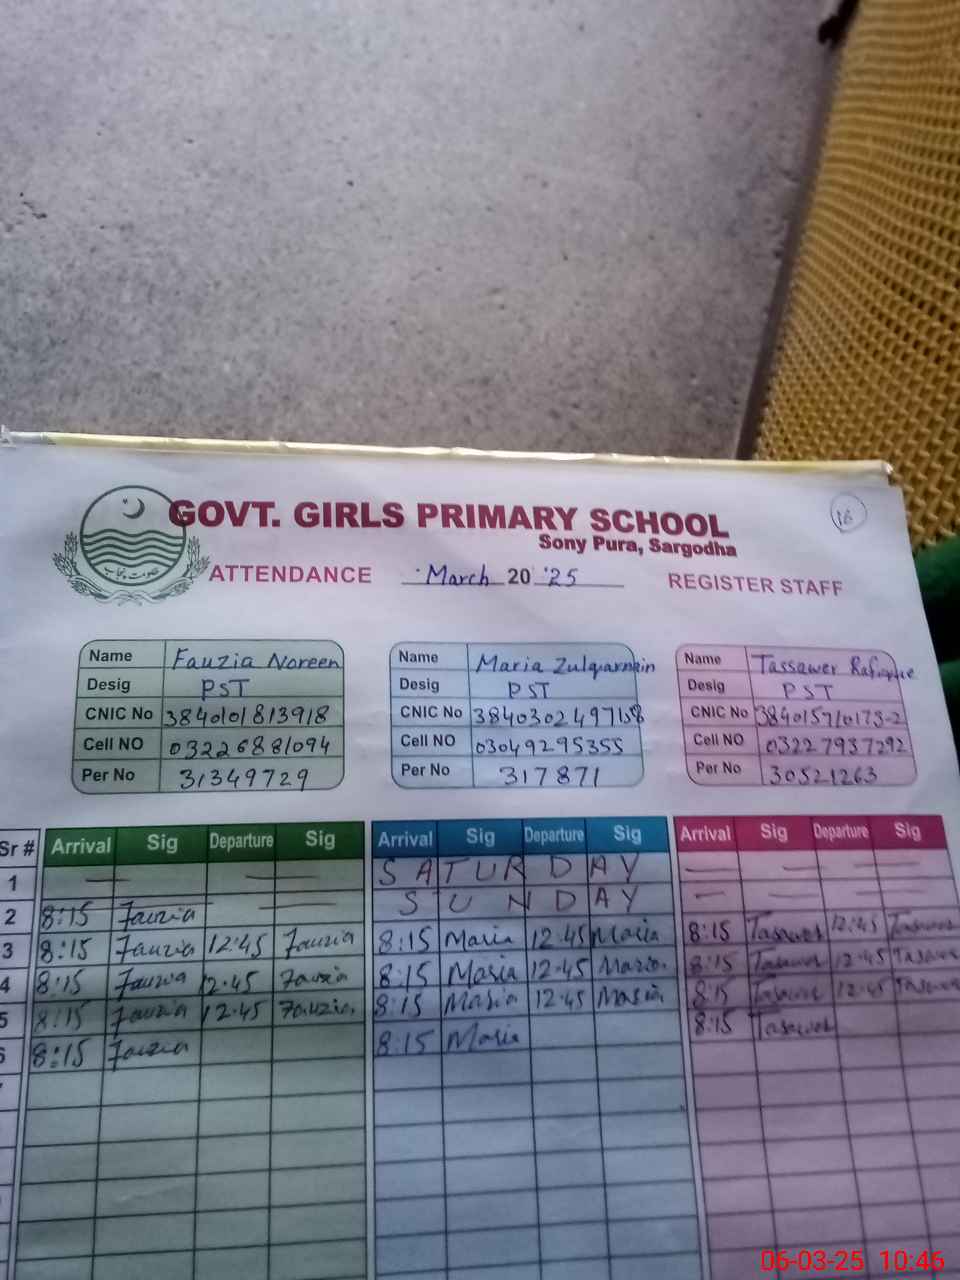 16
GOVT. GIRLS PRIMARY SCHOOL
Sony Pura, Sargodha
حکومت پنجاب
ATTENDANCE March 20 '25 REGISTER STAFF
Name Fauzia Noreen Name Maria Zulqarnain Name Tassawer Rafique
Desig PST Desig PST Desig PST
CNIC No 3840101813918 CNIC No 3840302497158 CNIC No 3840159710173-2
Cell NO 03226881094 Cell NO 03049295355 Cell NO 03227937292
Per No 31349729 Per No 317871 Per No 30521263
Sr # Arrival Sig Departure Sig Arrival Sig Departure Sig Arrival Sig Departure Sig
1 — — SATURDAY — — —
2 8:15 Fauzia — SUNDAY — — —
3 8:15 Fauzia 12:45 Fauzia 8:15 Maria 12:45 Maria 8:15 Tasawer 12:45 Tasawer
4 8:15 Fauzia 12:45 Fauzia 8:15 Maria 12:45 Maria 8:15 Tasawer 12:45 Tasawer
5 8:15 Fauzia 12:45 Fauzia 8:15 Maria 12:45 Maria 8:15 Tasawer 12:45 Tasawer
6 8:15 Fauzia 8:15 Maria 8:15 Tasawer
06-03-25 10:46